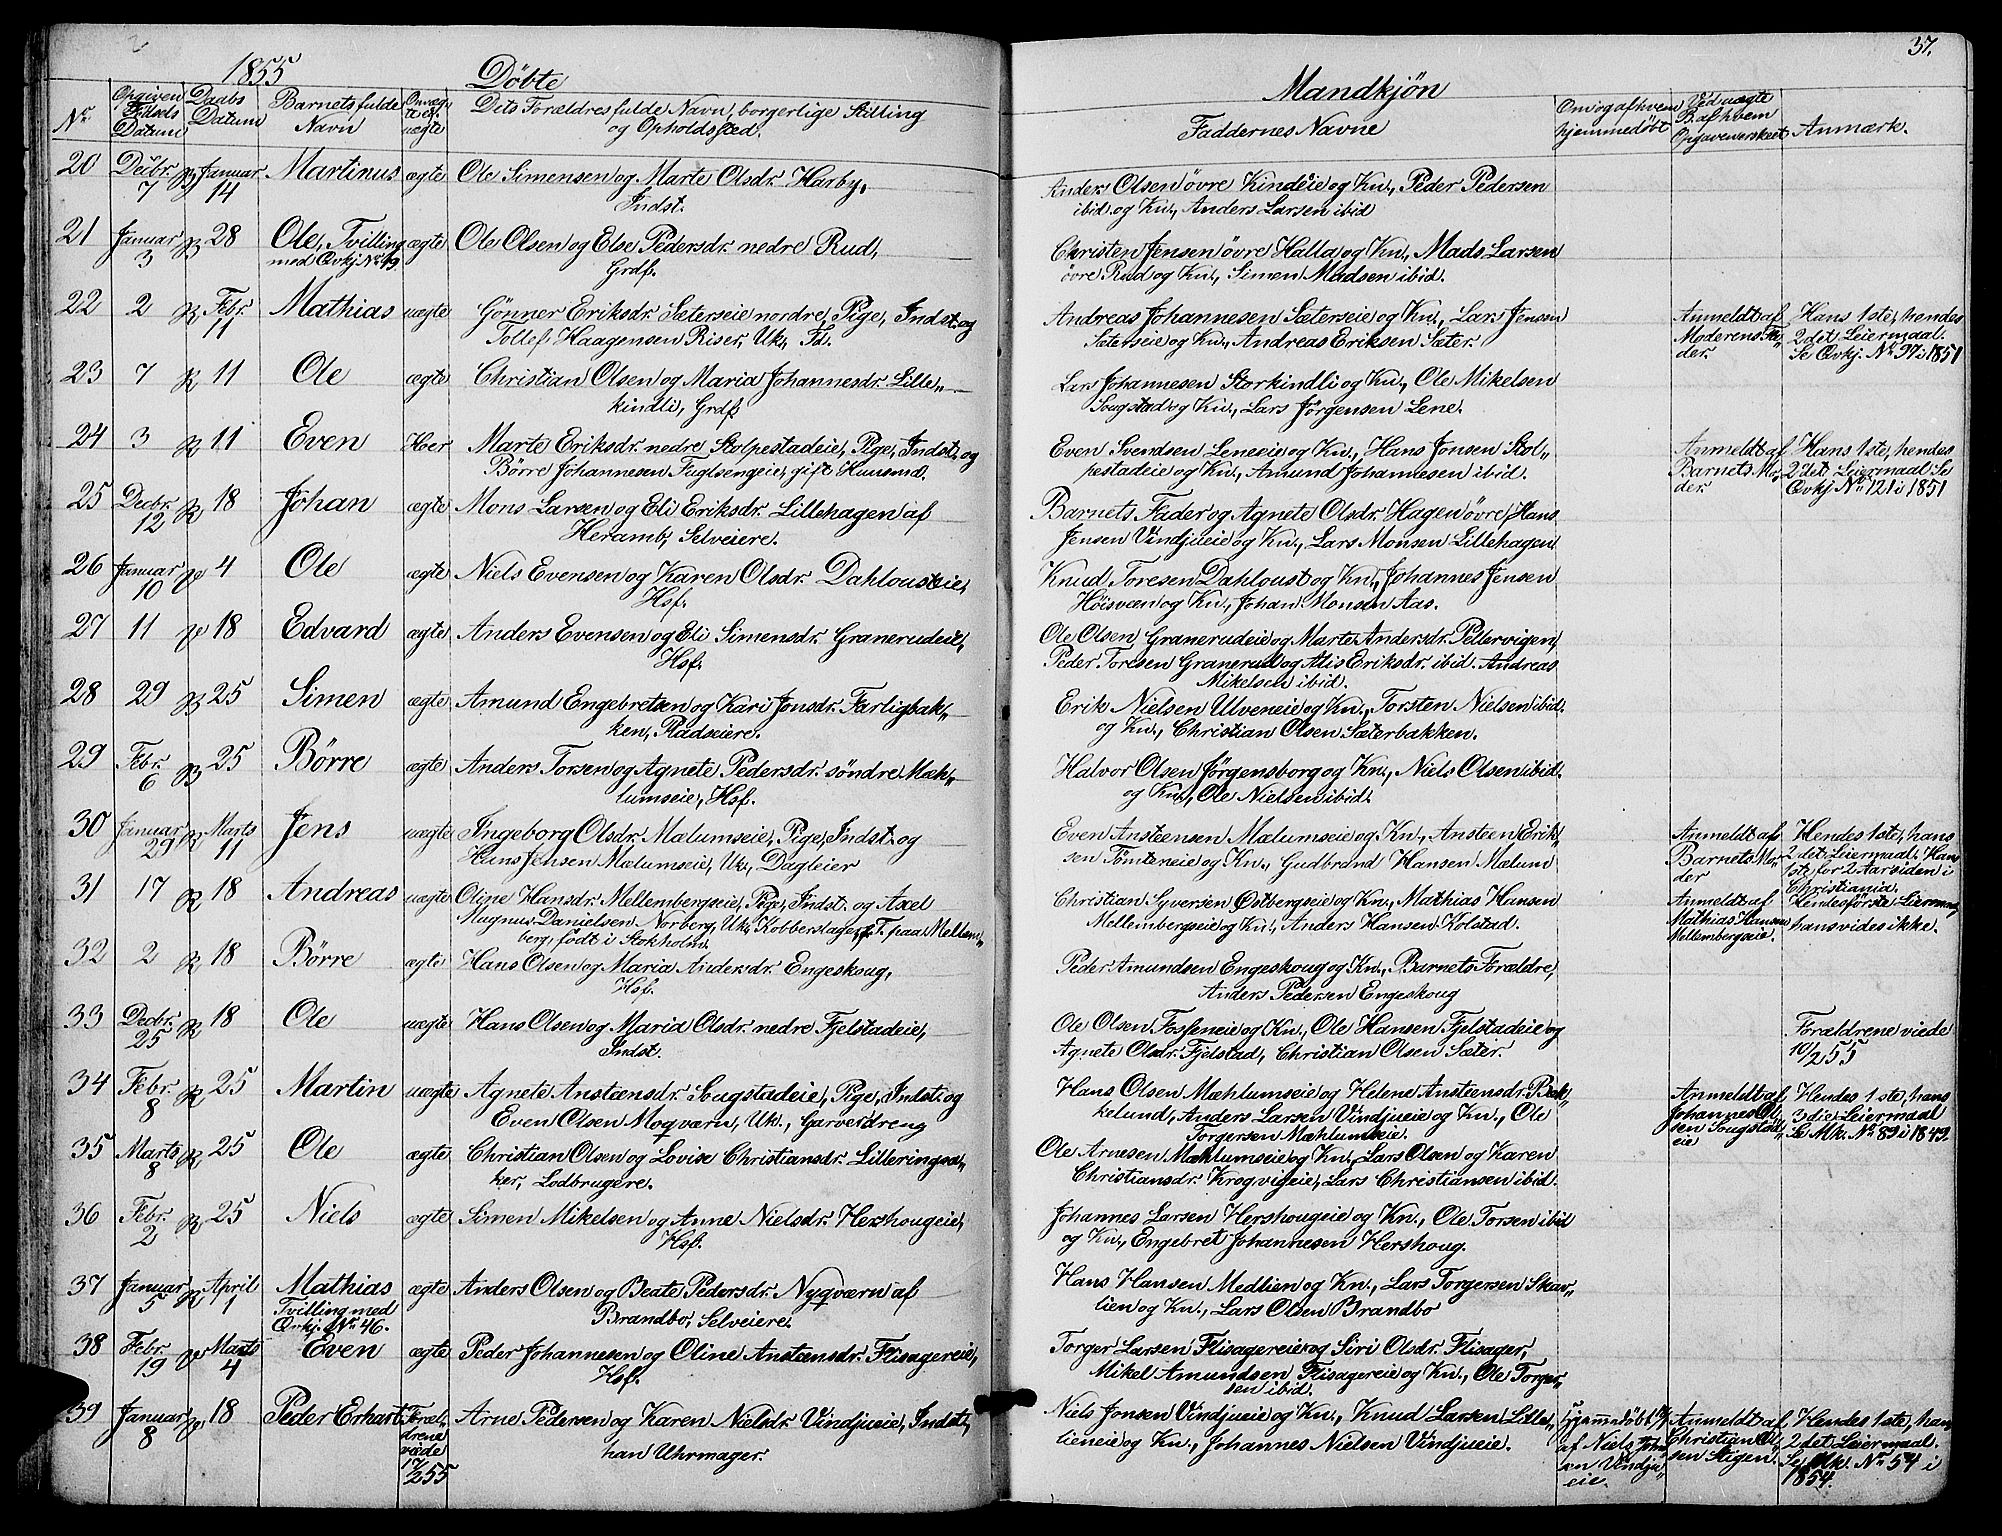 1855
Döbte
Nr.
Opgiven Fødsels Datum
Daabs Datum
Barnets fulde Navn
Om ægte el. uægte
Dets Forældres fulde Navn, borgerlige Stilling
og Opholdssted.
20 Decbr. 7 Januar 14 Martinus ægte Ole Simensen og Marte Olsdr. Harby,
Indst.
21 Januar 3 28 Ole, Tvilling ægte Ole Olsen og Else Pedersdr. nedre Rud,
med Qvkj. No. 19 Grdf.
22 2 Febr. 11 Mathias uægte Gönner Eriksdr. Sæterseie nordre, Pige, Indst. og
Tollef Haagensen Riser, Uk., Td.
23 7 11 Ole ægte Christian Olsen og Maria Johannesdr. Lille„
kindli, Grdf.
24 3 11 Even Hoer Marte Eriksdr. nedre Stolpestadeie, Pige, Indst. og
Börre Johannesen Fuglsengeie, gift Huusmd.
25 Decbr. 12 18 Johan ægte Mons Larsen og Eli Eriksdr. Lillehagen af
Heramb, Selveiere.
26 Januar 10 4 Ole ægte Niels Evensen og Karen Olsdr. Dahlousteie,
Hsf.
27 11 18 Edvard ægte Anders Evensen og Eli Simensdr. Granerudeie,
Hsf.
28 29 25 Simen ægte Amund Engebretsen og Kari Jonsdr. Farligbak„
ken, Pladseiere.
29 Febr. 6 25 Börre ægte Anders Torsen og Agnete Pedersdr. söndre Mæh„
lumseie, Hsf.
30 Januar 29 Marts 11 Jens uægte Ingeborg Olsdr. Mælumseie, Pige, Indst. og
Hans Jensen Mælumseie, Uk., Dagleier
31 17 18 Andreas uægte Oline Hansdr. Mellembergseie, Pige, Indst. og Axel
Magnus Danielsen Norberg, Uk. Kobberslager, p. T. paa Mellem„
berg, födt i Stokholm.
32 2 18 Börre ægte Hans Olsen og Maria Andersdr. Engeskoug,
Hsf.
33 Decbr. 25 18 Ole uægte Hans Olsen og Maria Olsdr. nedre Fjelstadeie,
Indst.
34 Febr. 8 25 Martin uægte Agnete Anstensdr. Sougstadeie, Pige, Indst. og
Even Olsen Moqvarn, Uk., Garverdreng
35 Marts 8 25 Ole ægte Christian Olsen og Lovise Christiansdr. Lilleringsa„
ker, Lodbrugere.
36 Febr. 2 25 Niels ægte Simen Mikelsen og Anne Nielsdr. Hershougeie,
Hsf.
37 Januar 5 April 1 Mathias ægte Anders Olsen og Beate Pedersdr. Nyqværn af
Tvilling med Brandbo, Selveiere.
Qvkj. No. 46.
38 Febr. 19 Marts 4 Even ægte Peder Johannesen og Oline Anstensdr. Flisagereie,
Hsf.
39 Januar 8 18 Peder Erhart Foræl„ Arne Pedersen og Karen Nielsdr. Vindjueie, Indst.,
drene viede 17/2 55 han Uhrmager.
37.
Mandkjön
Faddernes Navne
Om og af hvem hjemmedøbt
Ved uægte B. af hvem Opgaven er skeet
Anmærk.
Anders Olsen övre Kindeie og Kn., Peder Pedersen
ibid. og Kn., Anders Larsen ibid
Christen Jensen övre Halla og Kn., Mads Larsen
övre Rud og Kn., Simen Madsen ibid.
Andreas Johannesen Sæterseie og Kn., Lars Jensen
Sæterseie og Kn., Andreas Eriksen Sæter.
Anmeldt af Moderens Fa„ der.
Hans 1ste, hendes
2det Leiermaal.
Se Qvkj. No. 97 i 1851
Lars Johannesen Storkindli og Kn., Ole Mikelsen
Sougstad og Kn., Lars Jörgensen Lene.
Even Svendsen Leneeie og Kn., Hans Jonsen Stol„
pestadeie og Kn., Amund Johannesen ibid.
Anmeldt af Barnets Mo„ der.
Hans 1ste, hendes
2det Leiermaal Se
Qvkj. No. 121 i 1851
Barnets Fader og Agnete Olsdr. Hagen övre, Hans
Jensen Vindjueie og Kn., Lars Monsen Lillehagen
Knud Toresen Dahloust og Kn., Johannes Jensen
Höisveen og Kn., Johan Monsen Aas.
Ole Olsen Granerudeie og Marte Andersdr. Pellervigen,
Peder Toresen Granerud og Alis Eriksdr. ibid. Andreas
Mikelsen ibid.
Erik Nielsen Ulveneie og Kn., Torsten Nielsen ibid.
og Kn., Christian Olsen Sæterbakken.
Halvor Olsen Jörgensborg og Kn., Niels Olsen ibid.
og Kn., Ole Nielsen ibid.
Even Ansteensen Mælumseie og Kn., Ansteen Erik„
sen Tömteneie og Kn., Gudbrand Hansen Mælum
Anmeldt af Barnets Mo„ der
Hendes 1ste, hans
2det Leiermaal. Hans
1ste for 2 Aar siden i
Christiania.
Christian Syversen Ostbergseie og Kn., Mathias Hansen
Mellembergseie og Kn., Anders Hansen Kolstad.
Anmeldt af Mathias Hansen Mellembergseie.
Hendes förste Leiermaal,
hans vides ikke.
Peder Amundsen Engeskoug og Kn., Barnets Forældre,
Anders Pedersen Engeskoug
Ole Olsen Fosseneie og Kn., Ole Hansen Fjelstadeie og
Agnete Olsdr. Fjelstad, Christian Olsen Sæter.
Forældrene viede
10/2 55
Hans Olsen Mæhlumseie og Helene Ansteensdr. Bæk„
kelund, Anders Larsen Vindjueie og Kn., Ole
Torgersen Mæhlumseie.
Anmeldt af Johannes Ol„ sen Sougstad„ eie
Hendes 1ste, hans
3die Leiermaal
Se Mk. No. 89 i 1849.
Ole Arnesen Mæhlumseie og Kn., Lars Olsen og Karen
Christiansdr. Krogvigeie, Lars Christiansen ibid.
Johannes Larsen Hershougeie og Kn., Ole Torsen ibid
og Kn., Engebret Johannesen Hershoug.
Hans Hansen Medlien og Kn., Lars Torgersen Skav„
lien og Kn., Lars Olsen Brandbo
Torger Larsen Flisagereie og Siri Olsdr. Flisager,
Mikel Amundsen Flisagereie og Kn., Ole Torger„
sen ibid.
Niels Jonsen Vindjueie og Kn., Knud Larsen Lille„
lieneie og Kn., Johannes Nielsen Vindjueie.
Hjemmedöbt af Niels Jon„ sen Vindju„ eie.
Anmeldt af Christian Ol„ sen Stigen.
Hendes 1ste, hans
2det Leiermaal.
Se Mk. No. 54 i
1854.